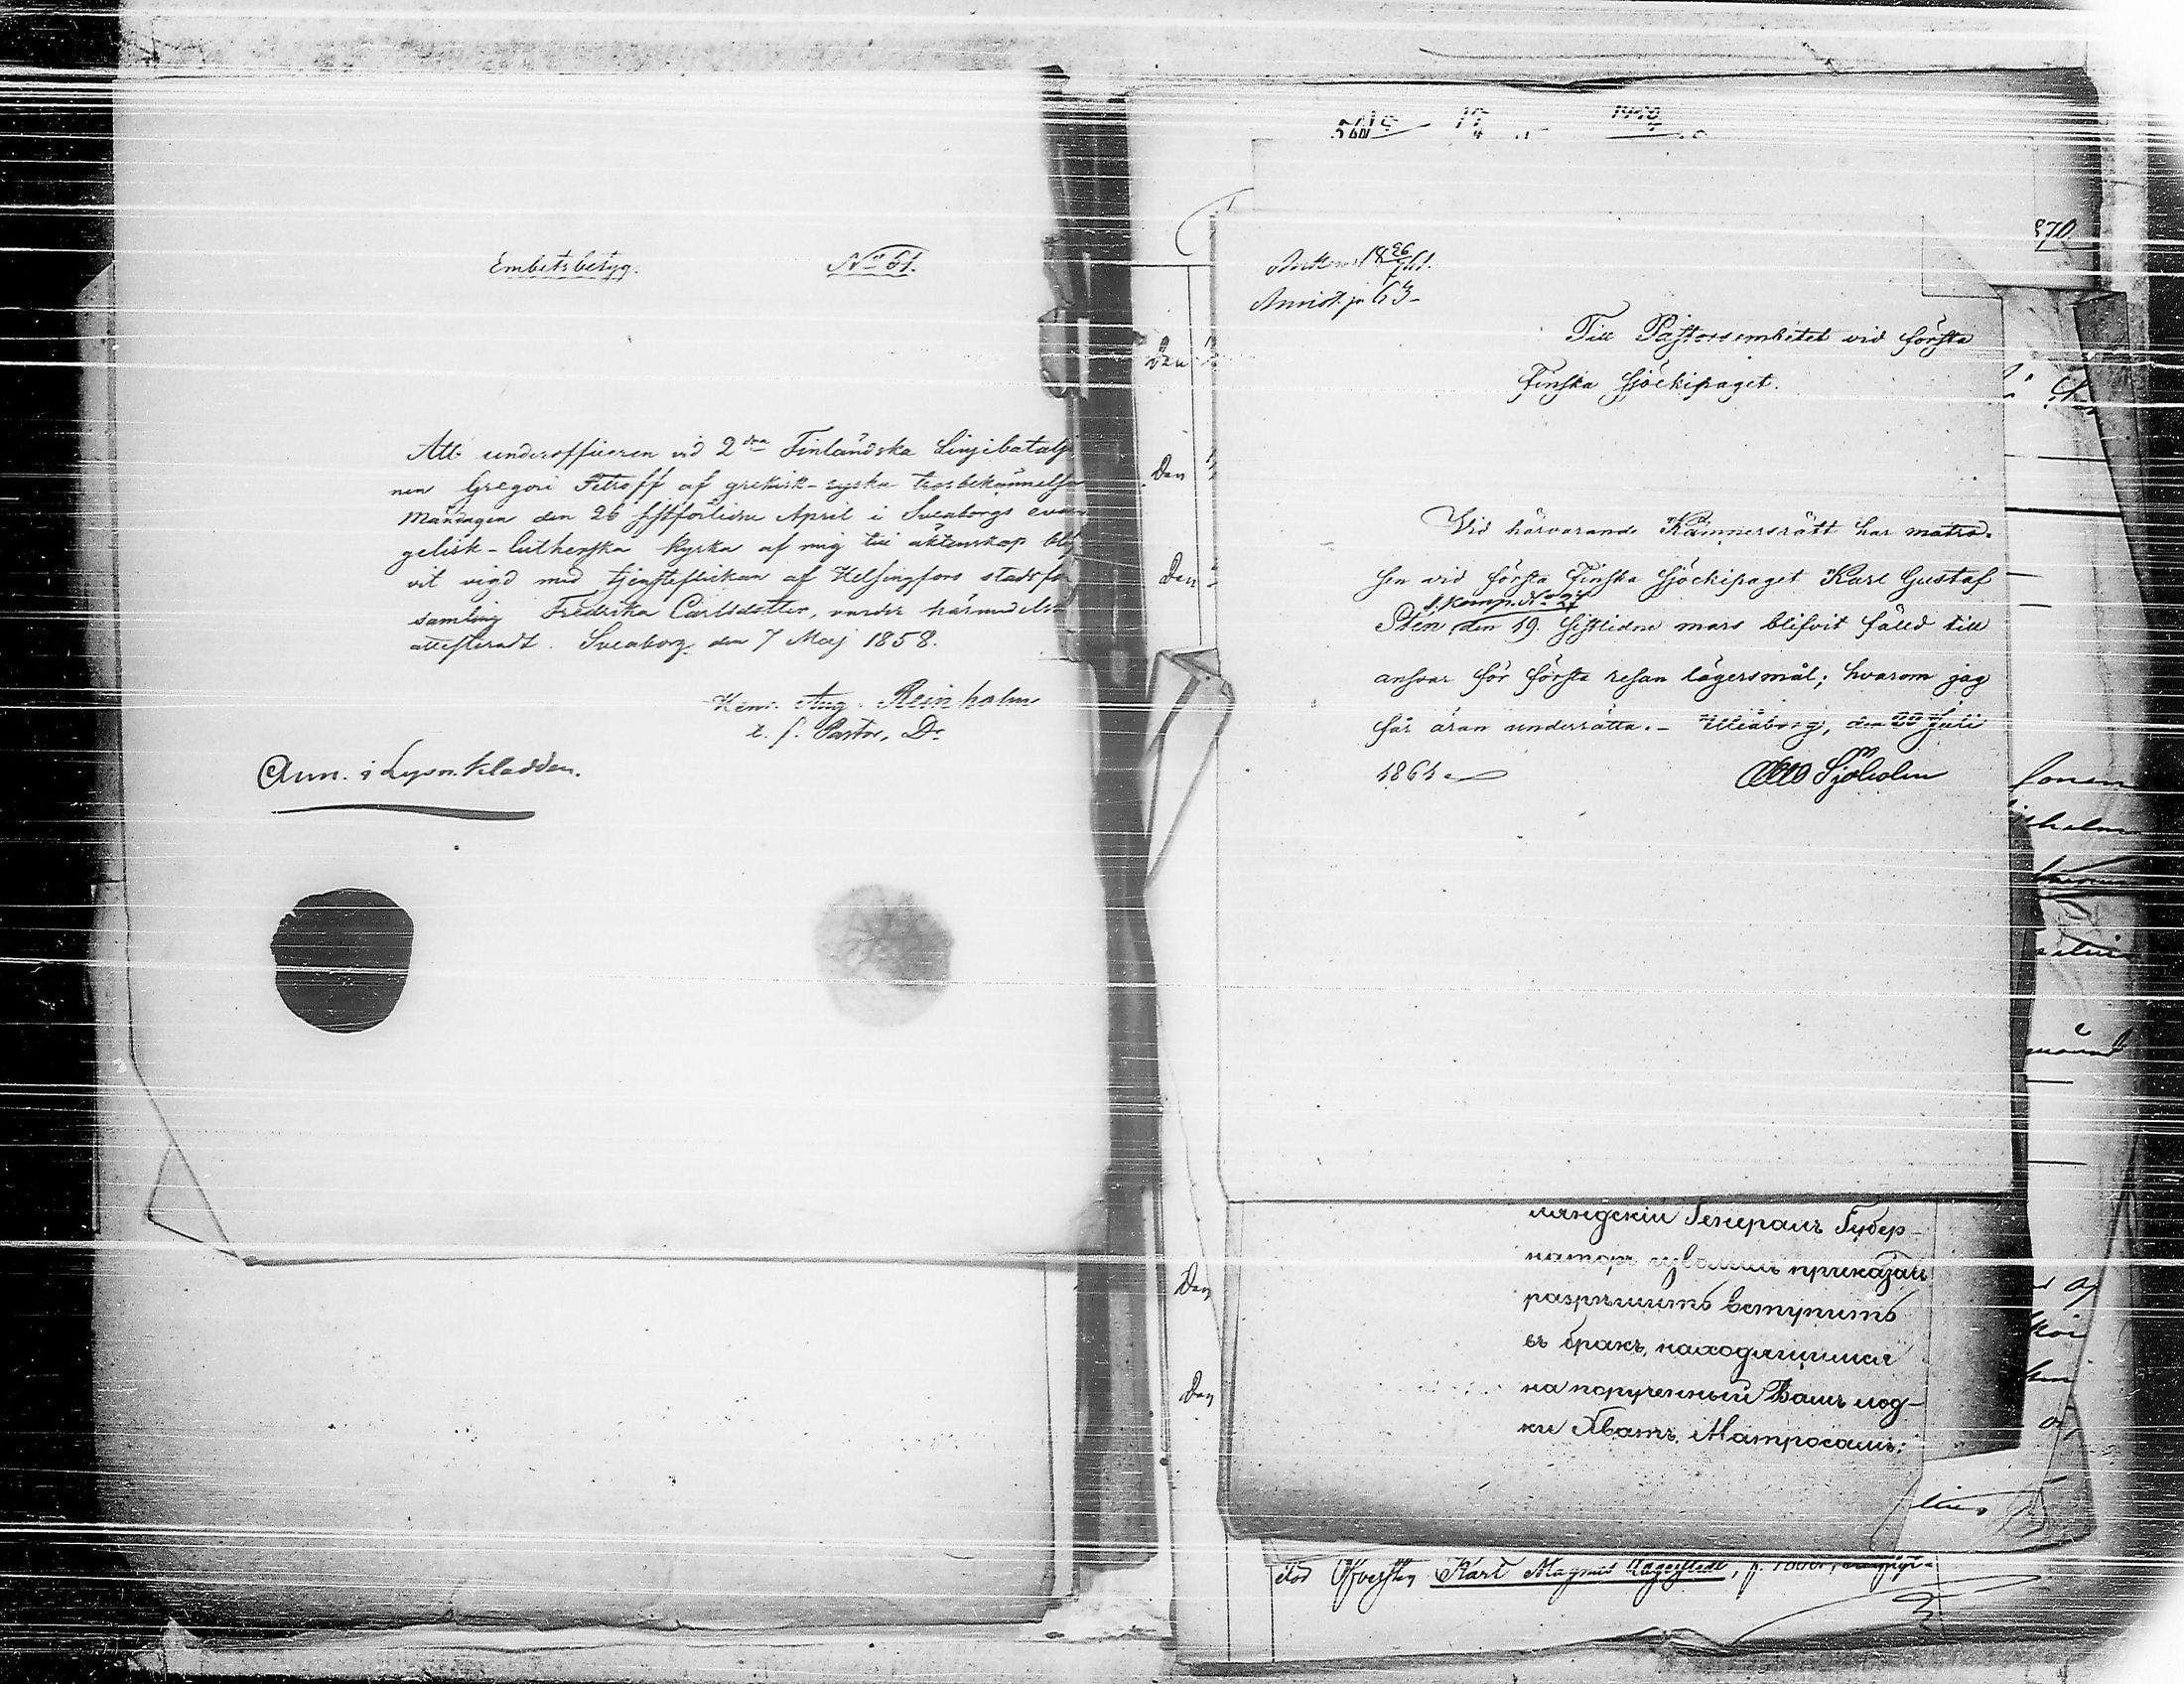 Embetsbetyg. No 61.
Att underofficeren vid 2dra Finländska Linjebatalj
nen Gregori Petroff af grekisk-ryska trosbekännelse
Måndagen den 26 sistförlidne April i Sveaborgs evan
gelisk-lutherska kyrka af mig till äktenskap blif
vit vigd med tjensteflickan af Helsingfors stadsför
samling Fredrika Carlsdotter, varder härmedelst
attesteradt. Sveaborg den 7 Maj 1858.
Henr. Aug. Reinholm
t. f. Pastor, Dr
Ann. i Lysn. kladden.
Den
Den
Den
Den
Den
870
63
Till Pastorsembetet vid första
Finska Sjöekipaget.
Vid härvarande Kämnersrätt har matro-
sen vid första Finska Sjöekipaget Karl Gustaf
1. Komp. No 27
Sten den 19. sistlidne mars blifvit fälld till
ansvar för första resan lägersmål; hvarom jag
får äran underrätta. - Uleåborg, den Juli
1861
Otto Sjöholm
ляндскiй Генералъ Губер-
наторъ изволилъ приказать
разрѣшить вступить
въ бракъ, находящимся
на порученный Вамъ лод-
ки Хватъ, Матросамъ:
Öfversten Karl Magnus Lagerstedt, f.